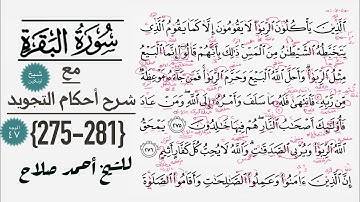 سُورَةُ البَقَرَةِ
مع
شرح أحكام التجويد
{275-281}
للشيخ أحمد صلاح
الوجه
٤٧
ٱلَّذِينَ يَأْكُلُونَ ٱلرِّبَوٰا۟ لَا يَقُومُونَ إِلَّا كَمَا يَقُومُ ٱلَّذِى
يَتَخَبَّطُهُ ٱلشَّيْطَٰنُ مِنَ ٱلْمَسِّ ذَٰلِكَ بِأَنَّهُمْ قَالُوٓا۟ إِنَّمَا ٱلْبَيْعُ
مِثْلُ ٱلرِّبَوٰا۟ وَأَحَلَّ ٱللَّهُ ٱلْبَيْعَ وَحَرَّمَ ٱلرِّبَوٰا۟ فَمَن جَآءَهُۥ مَوْعِظَةٌ
مِّن رَّبِّهِۦ فَٱنتَهَىٰ فَلَهُۥ مَا سَلَفَ وَأَمْرُهُۥٓ إِلَى ٱللَّهِ وَمَنْ عَادَ
فَأُو۟لَٰٓئِكَ أَصْحَٰبُ ٱلنَّارِ هُمْ فِيهَا خَٰلِدُونَ ٢٧٥ يَمْحَقُ
ٱللَّهُ ٱلرِّبَوٰا۟ وَيُرْبِى ٱلصَّدَقَٰتِ وَٱللَّهُ لَا يُحِبُّ كُلَّ كَفَّارٍ أَثِيمٍ ٢٧٦
إِنَّ ٱلَّذِينَ ءَامَنُوا۟ وَعَمِلُوا۟ ٱلصَّٰلِحَٰتِ وَأَقَامُوا۟ ٱلصَّلَوٰةَ